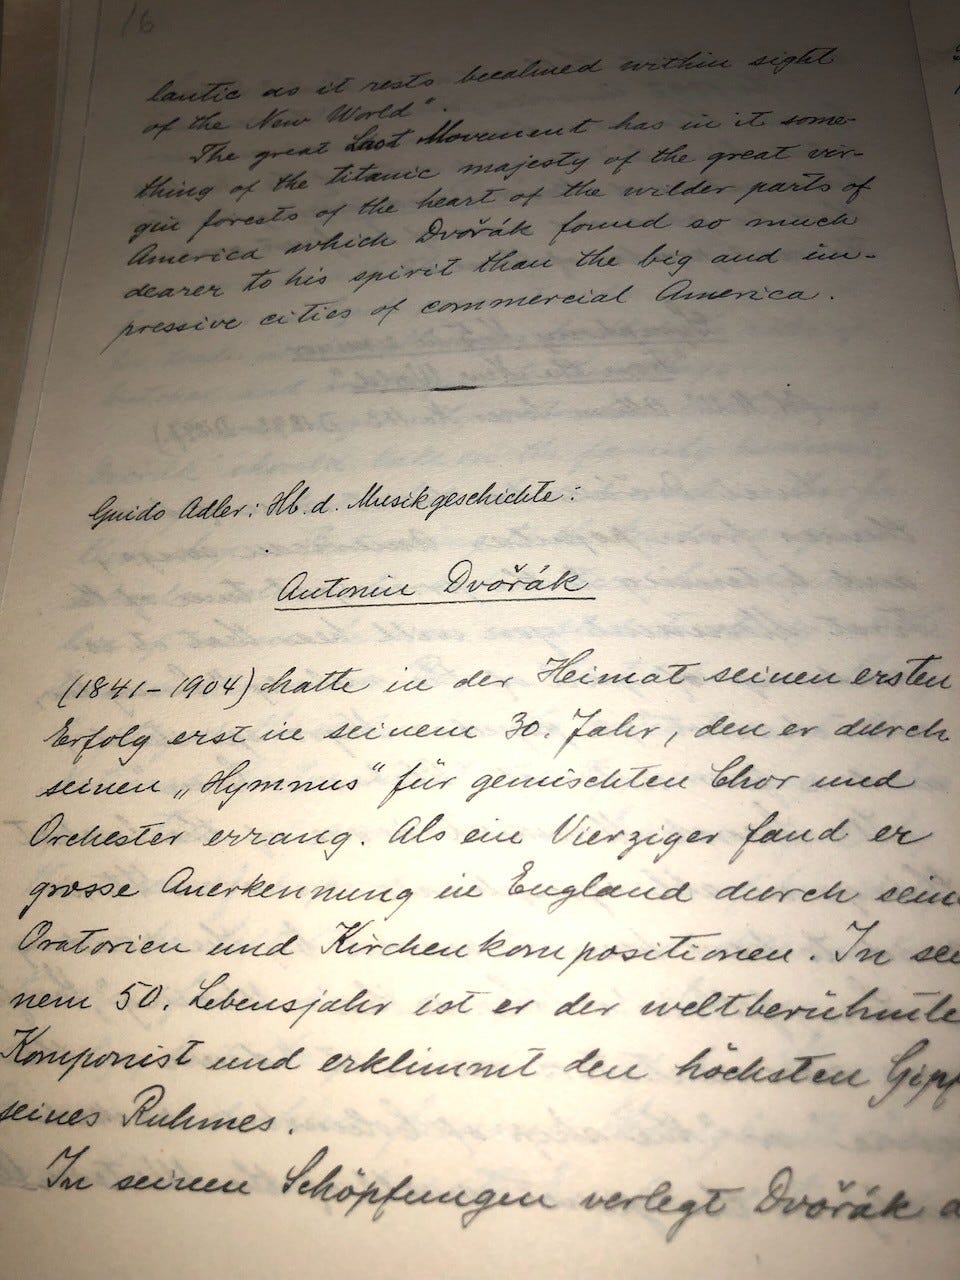 16
lantic as it rests becalmed within sight
of the New World".
The great Last Movement has in it some-
thing of the titanic majesty of the great vir-
gin forests of the heart of the wilder parts of
America which Dvořák found so much
dearer to his spirit than the big and im-
pressive cities of commercial America.
Guido Adler: Hb. d. Musikgeschichte:
Antonin Dvořák
(1841-1904) hatte in der Heimat seinen ersten
Erfolg erst in seinem 30. Jahr, den er durch
seinen „Hymnus“ für gemischten Chor und
Orchester errang. Als ein Vierziger fand er
grosse Anerkennung in England durch sein
Oratorien und Kirchenkompositionen. In sei
nem 50. Lebensjahr ist er der weltberühmte
Komponist und erklimmt den höchsten Gipf
seines Ruhmes.
In seinen Schöpfungen verlegt Dvořák d